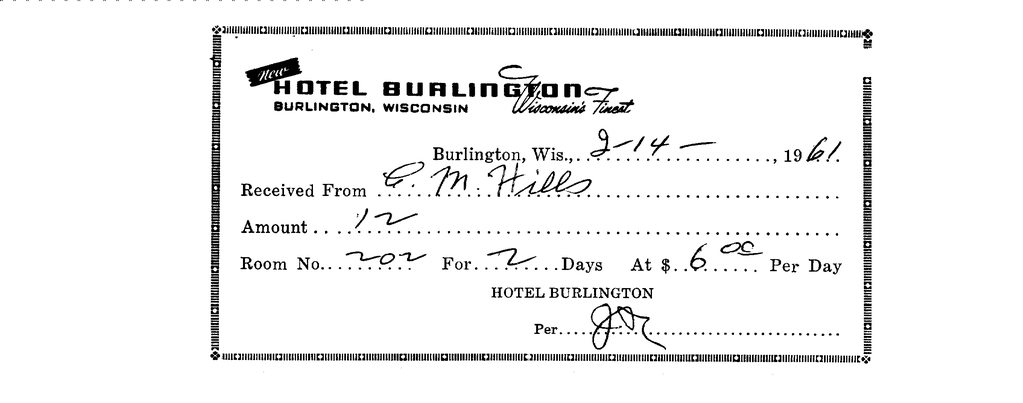 New
HOTEL BURLINGTON
BURLINGTON, WISCONSIN Wisconsin's Finest
Burlington, Wis., 2-14-, 1961.
Received From C. M. Hills
Amount 12
Room No. 202 For 2 Days At $ 6 00 Per Day
HOTEL BURLINGTON
Per